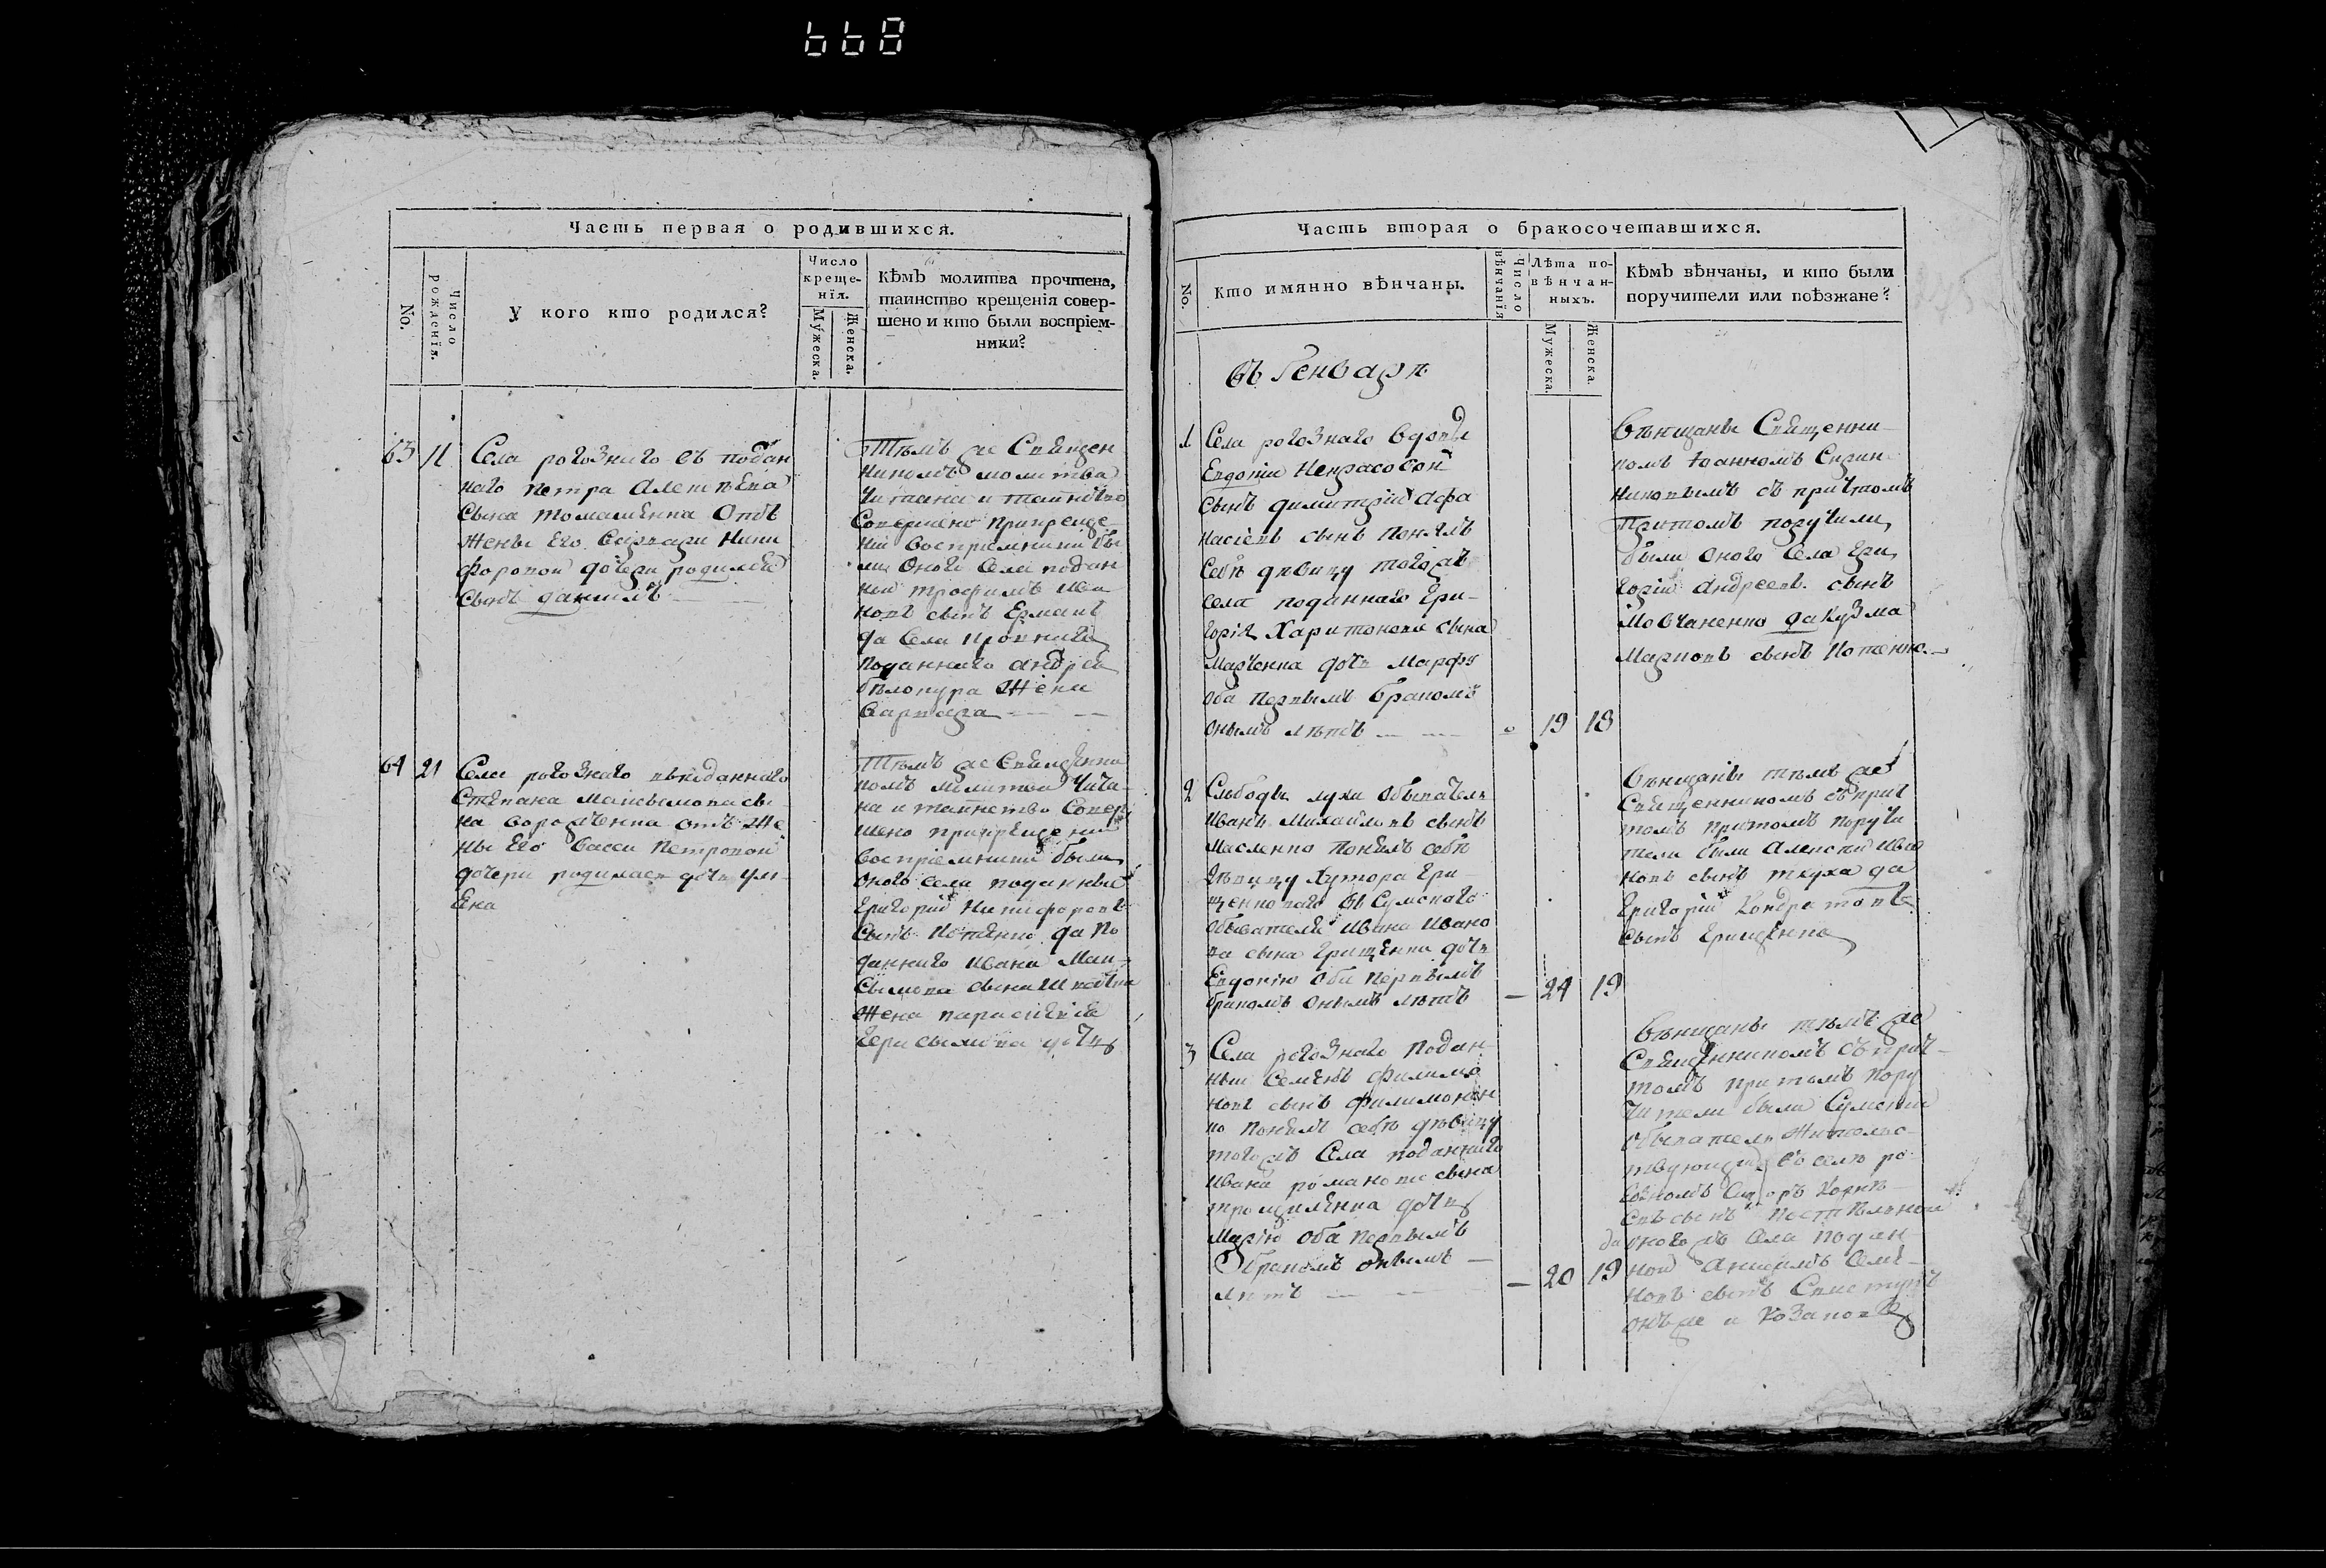 668
Часть первая о родившихся.
No.
Число рожденія.
У кого кто родился?
Число крещенія.
Мужеска.
Женска.
Кѣмъ молитва прочтена,
таинство крещенія совер-
шено и кто были воспріем-
ники?
63 11
Села рогозного
ного Петра Алексѣева
сына отъ
жены его Варвари Ники
форовой дочери родился
сынъ Даніилъ
Тѣмъ же Священ
никомъ молитва
читана и таинство
Совершено при креще
ніи воспріемники бы
ли оного Села подан
ній Трофимъ Ива
новъ сынъ
да Села
поданного Андрея
Бѣлокура жена
Варвара
64 21
Села рогозного подданного
Степана Максимова сы
на отъ же
ны его Васси Петровой
дочери родилась дочь Ули
яна
Тѣмъ же Священни
комъ молитва чита
на и таинство Совер
шено при крещеніи
воспріемники были
оного села поданный
Григорий Никифоровъ
сынъ Котенко да по
данного Ивана Мак
симова сына
жена Параскевія
Герасимова дочь
Часть вторая о бракосочетавшихся.
No.
Кто имянно вѣнчаны.
Число вѣнчанія
Лѣта по-
вѣнчан-
ныхъ.
Мужеска.
Женска.
Кѣмъ вѣнчаны, и кто были
поручители или поѣзжане?
Въ Генварѣ
1 Села рогозного вдовы
Евдокіи Некрасовой
сынъ Димитрій Афа
насіевъ сынъ понялъ
себѣ дѣвицу тогожъ
села поданного Гри-
горія Харитонова сына
Марченка дочь Марфу
оба первымъ бракомъ
онымъ лѣтъ 19 18
Вѣнчаны Священни-
комъ Іоанномъ
съ причтомъ
притомъ поручили
были оного Села Гри
горій Андреевъ сынъ
Мовчаненко да Кузма
Марковъ сынъ Котенко
2 Слободы луки обыватель
Иванъ Михайловъ сынъ
Масленко понялъ себѣ
дѣвицу Хутора Гри-
щенкового Сумского
обывателя Ивана Ивано
ва сына Грищенка дочь
Евдокію оба первымъ
бракомъ онымъ лѣтъ 24 19
Вѣнчаны тѣмъ же
Священникомъ съ прич
томъ притомъ поручи
тели были Алексій Ива
новъ сынъ да
Григорій Кондратовъ
сынъ Грищенко
3 Села рогозного подан-
ный Семенъ Филимо
новъ сынъ Филимонен
ко понялъ себѣ дѣвицу
тогожъ Села поданного
Ивана Романова сына
дочь
Марію оба первымъ
бракомъ онымъ
лѣтъ 20 19
Вѣнчаны тѣмъ же
Священникомъ съ прич-
томъ притомъ пору
чители были Сумскій
обыватель жителс-
твующій въ селѣ ро-
зномъ
сынъ
да оного жъ Села подан-
ной Анисимъ Семе-
новъ сынъ
онъ же и